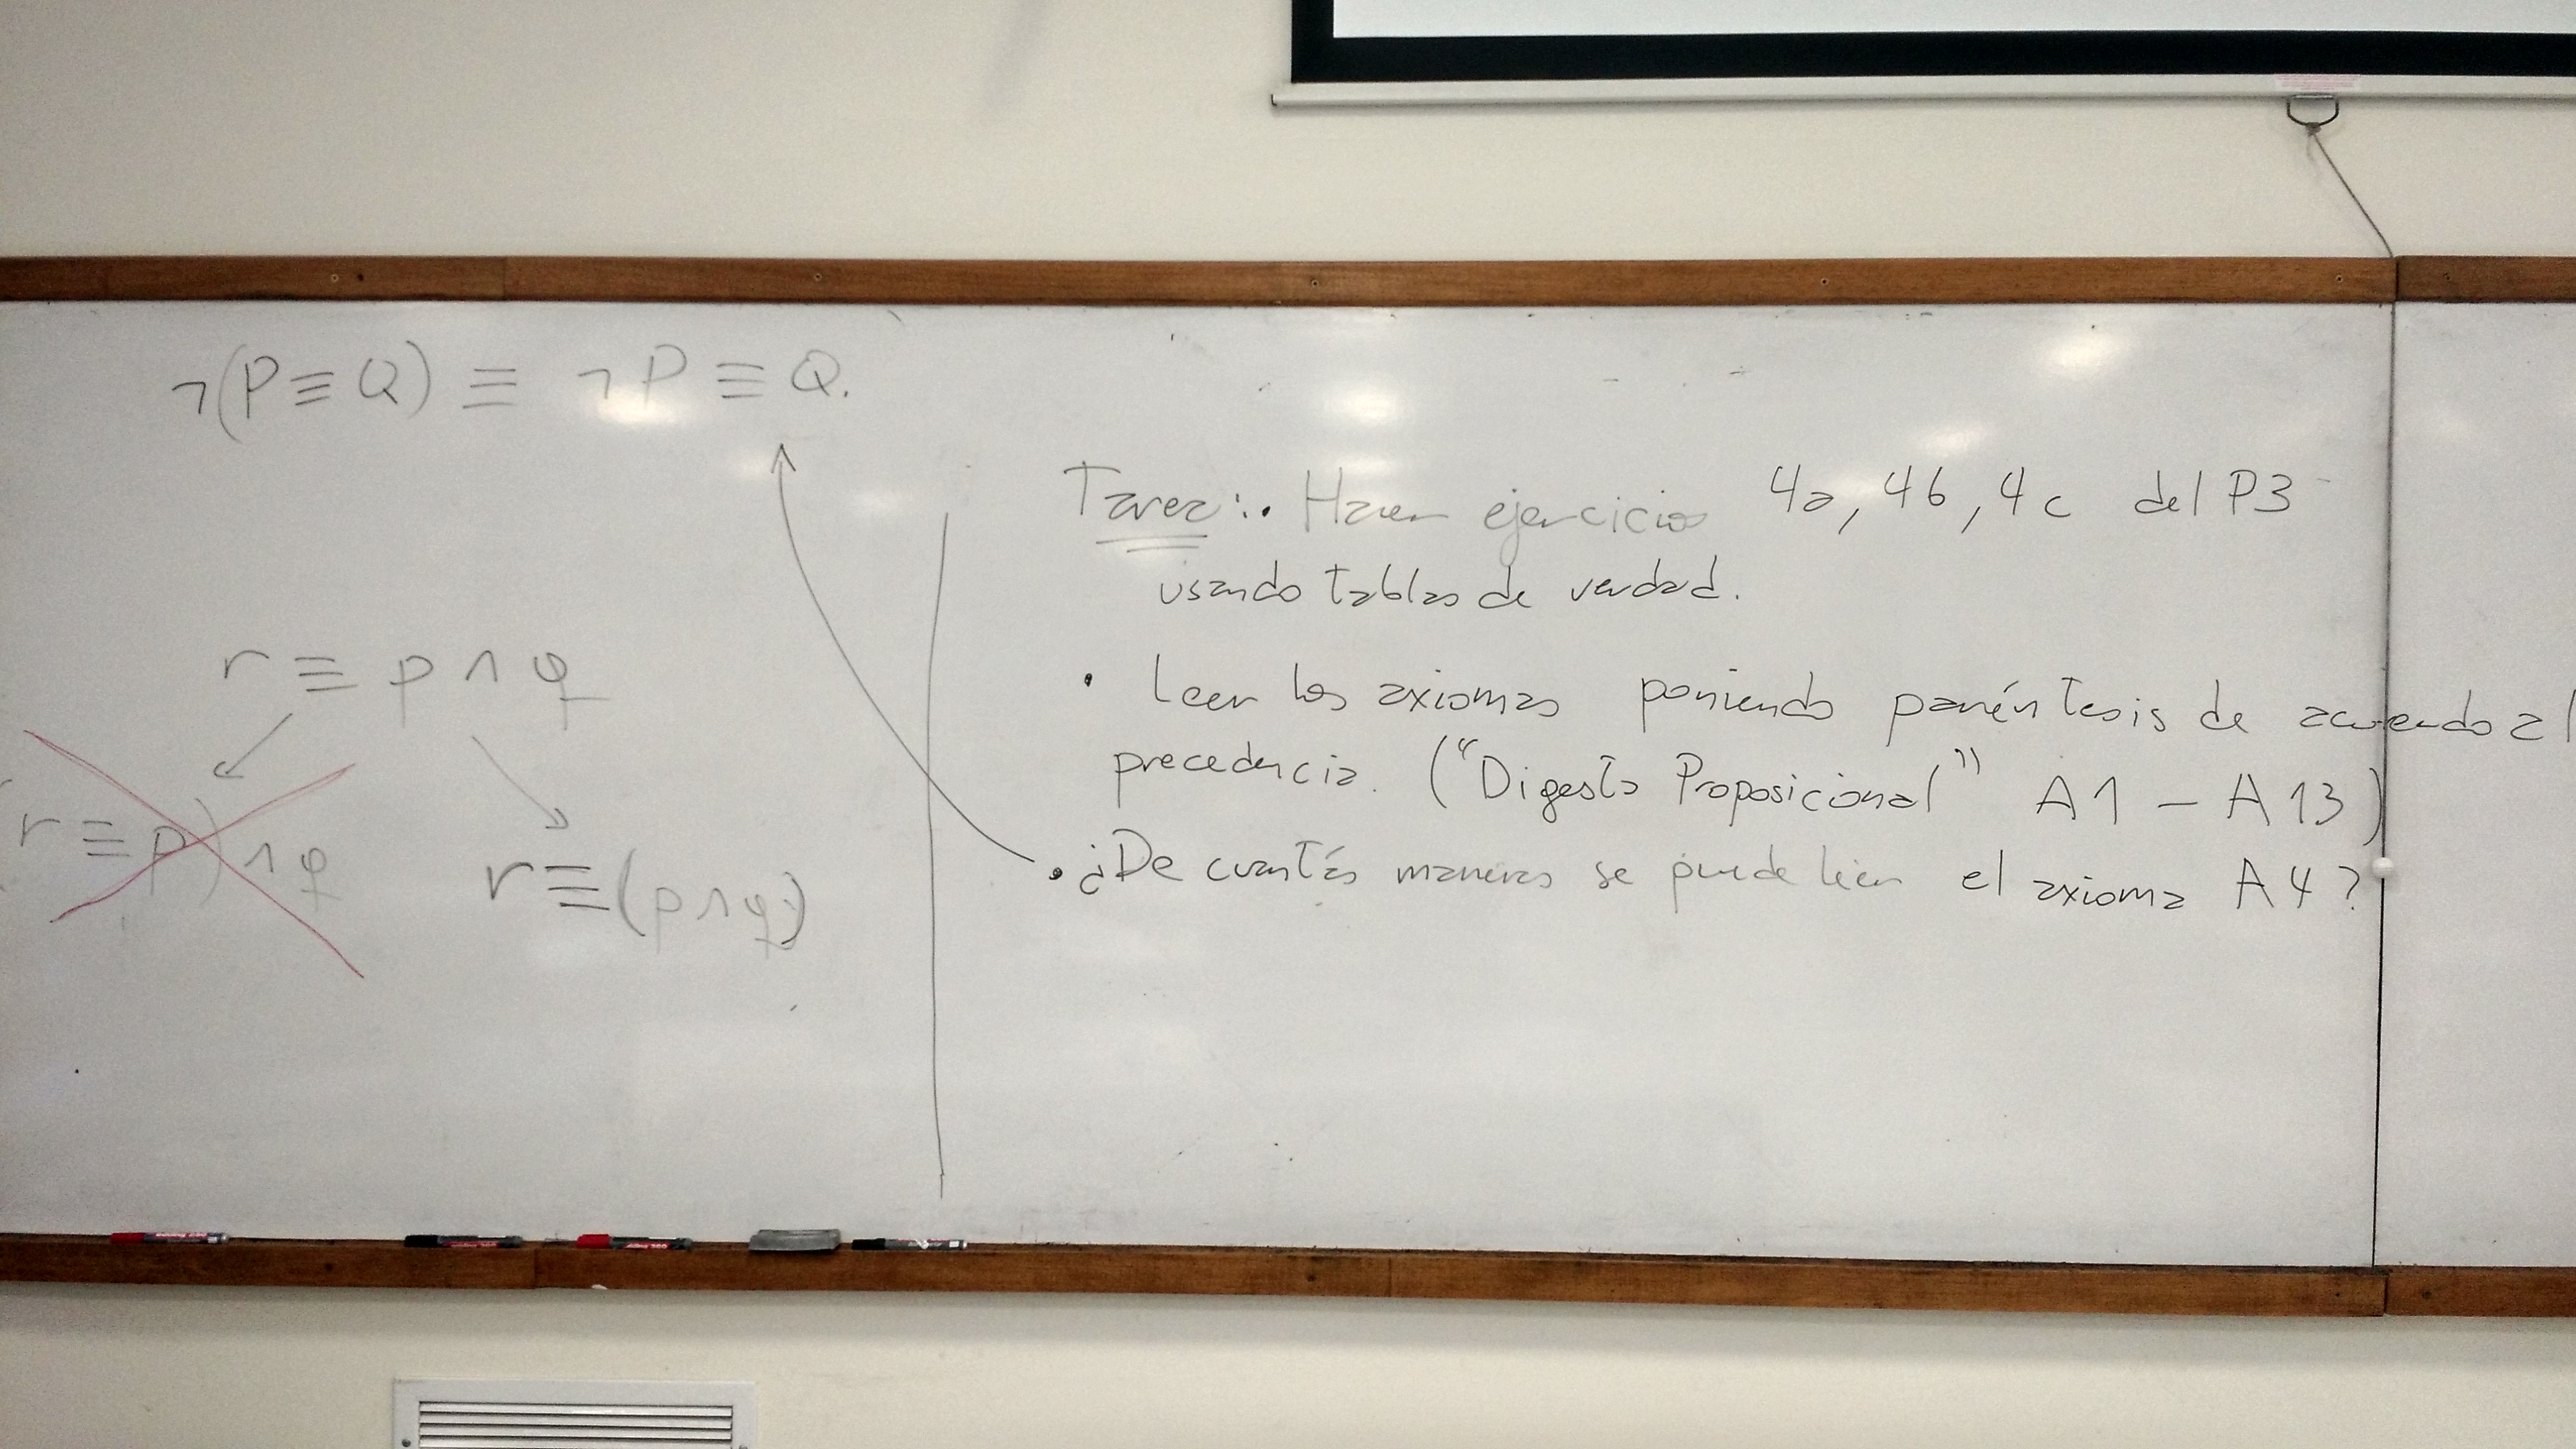 ¬(P ≡ Q) ≡ ¬P ≡ Q.
r ≡ p ∧ q
r ≡ p) ∧ q
r ≡ (p ∧ q)
Tarea: • Hacer ejercicio 4a, 4b, 4c del P3
usando tablas de verdad.
• Leer los axiomas poniendo paréntesis de acuerdo al
precedencia. ("Digesto Proposicional" A1 – A13)
• ¿De cuantás maneras se puede leer el axioma A4?